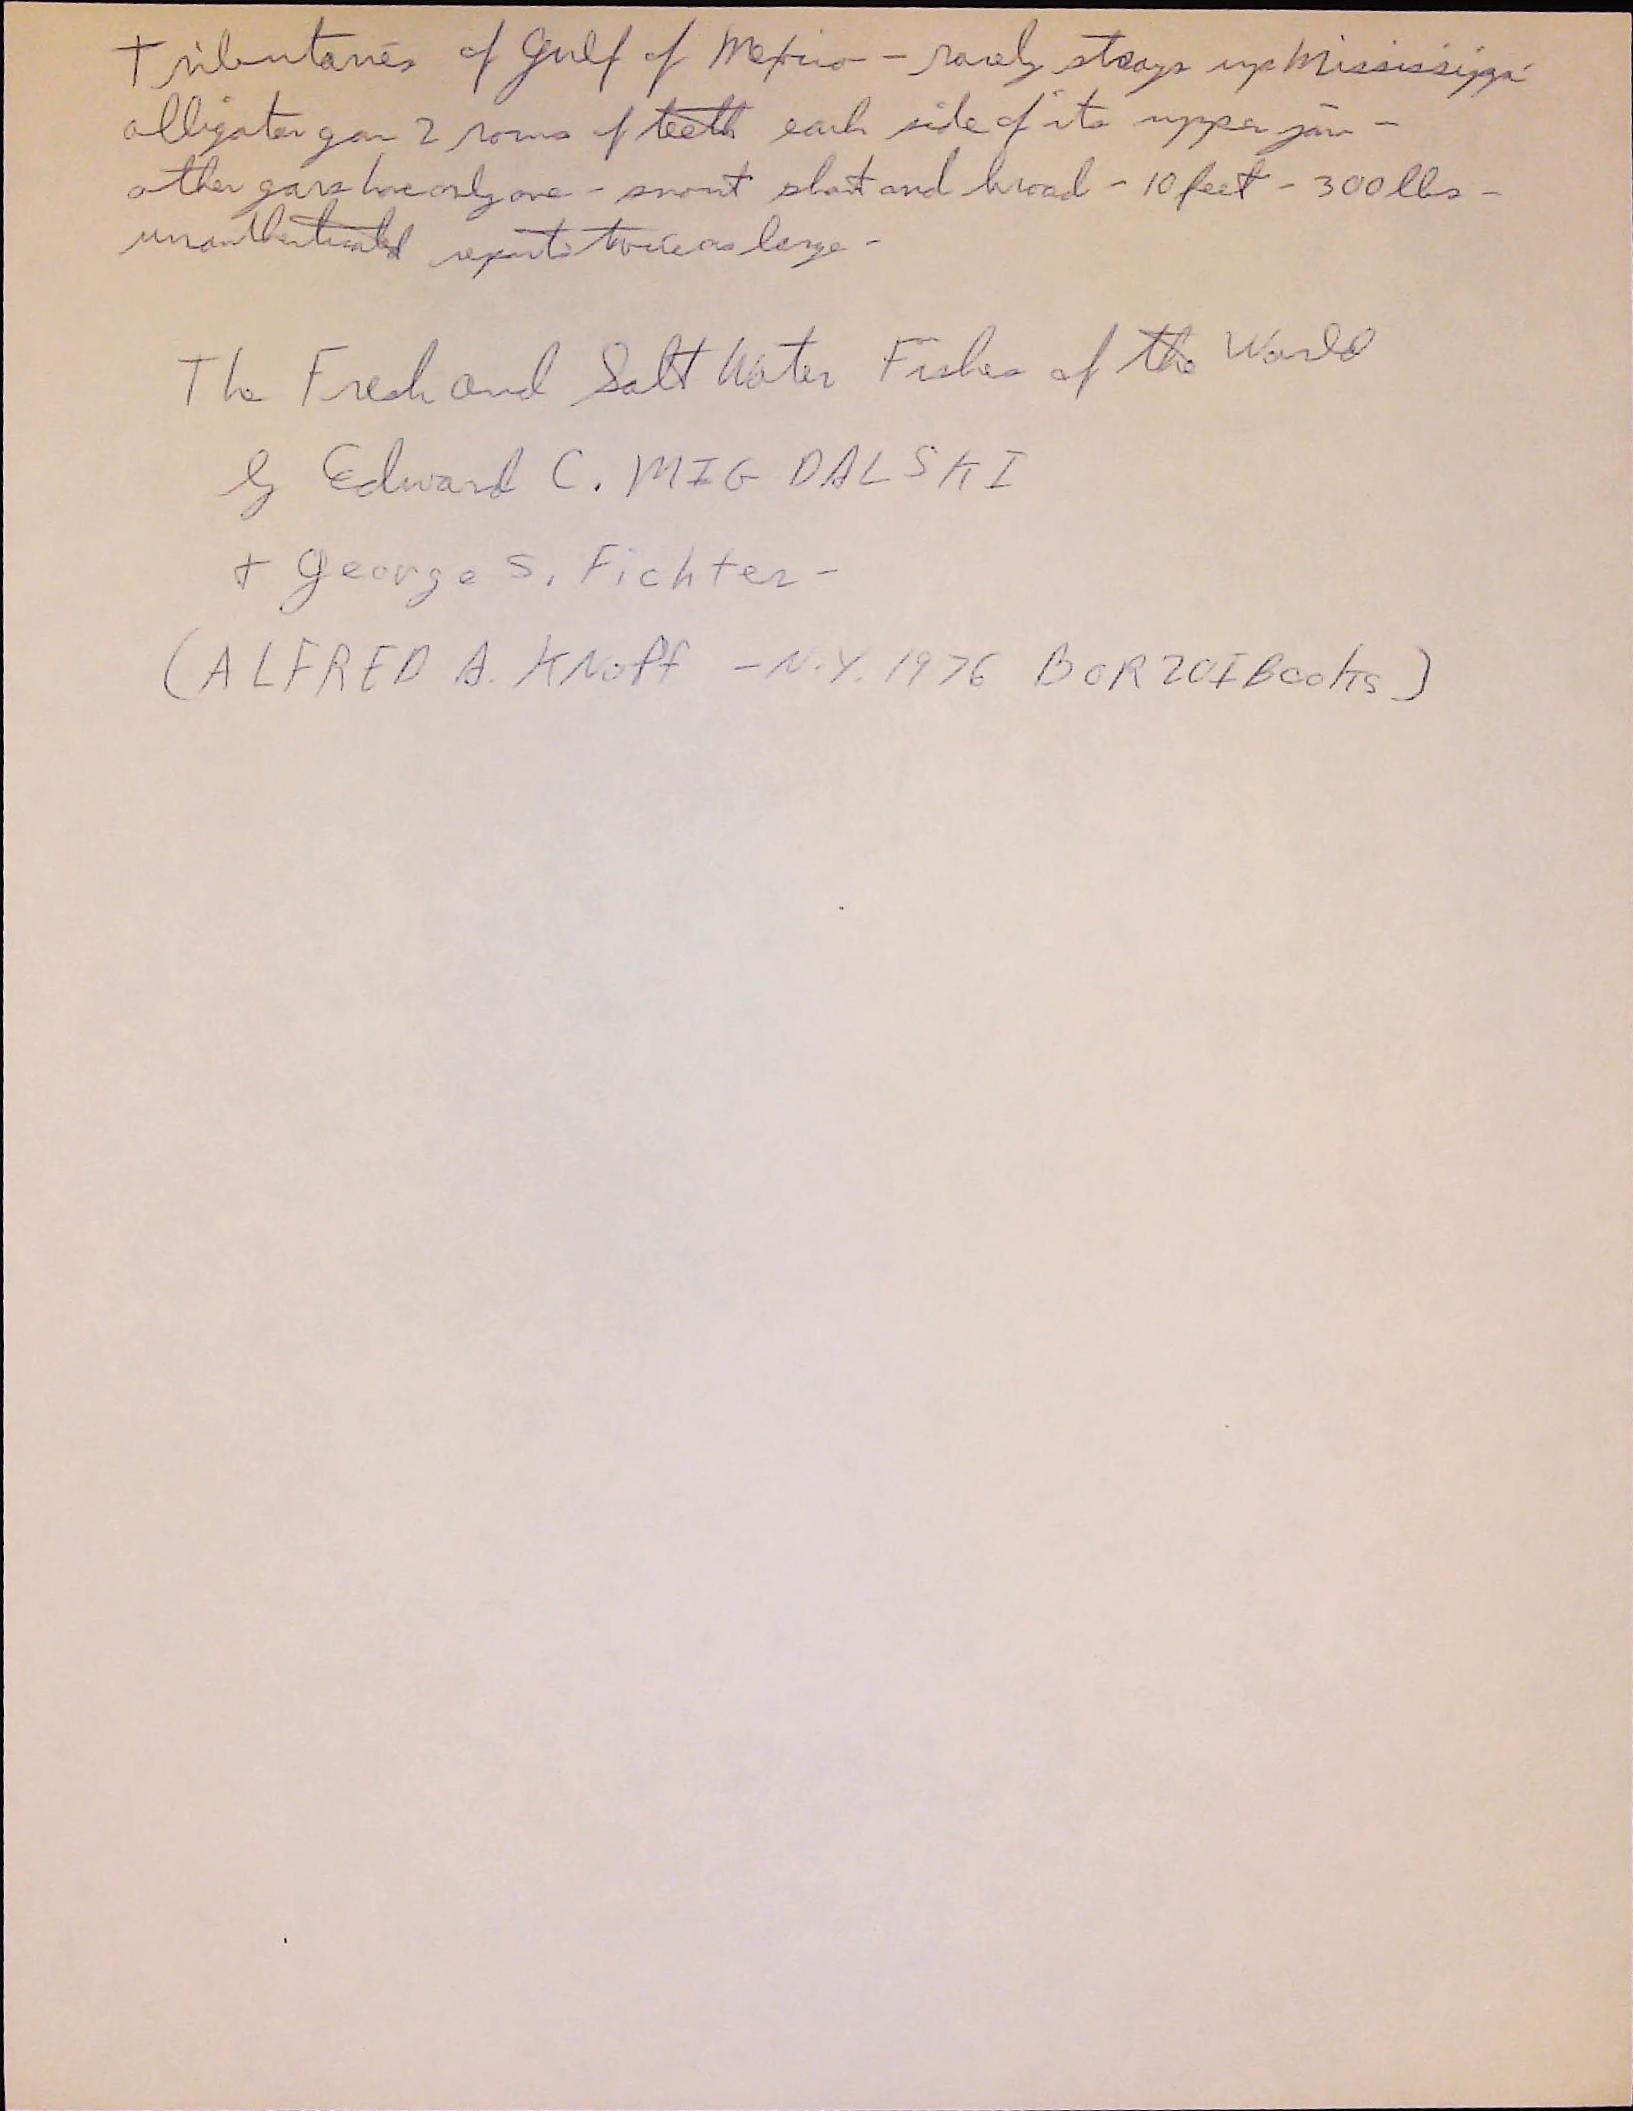 Tributaries of Gulf of Mexico - rarely strays up Mississippi
alligator gar 2 rows of teeth each side of its upper jaw -
other gars have only one - snout short and broad - 10 feet - 300 lbs -
unauthenticated reports twice as large -
The Fresh and Salt Water Fishes of the World
by Edward C. MIGDALSKI
+ George S. Fichter -
(ALFRED A. KNOPf - N.Y. 1976 BORZOI Books)